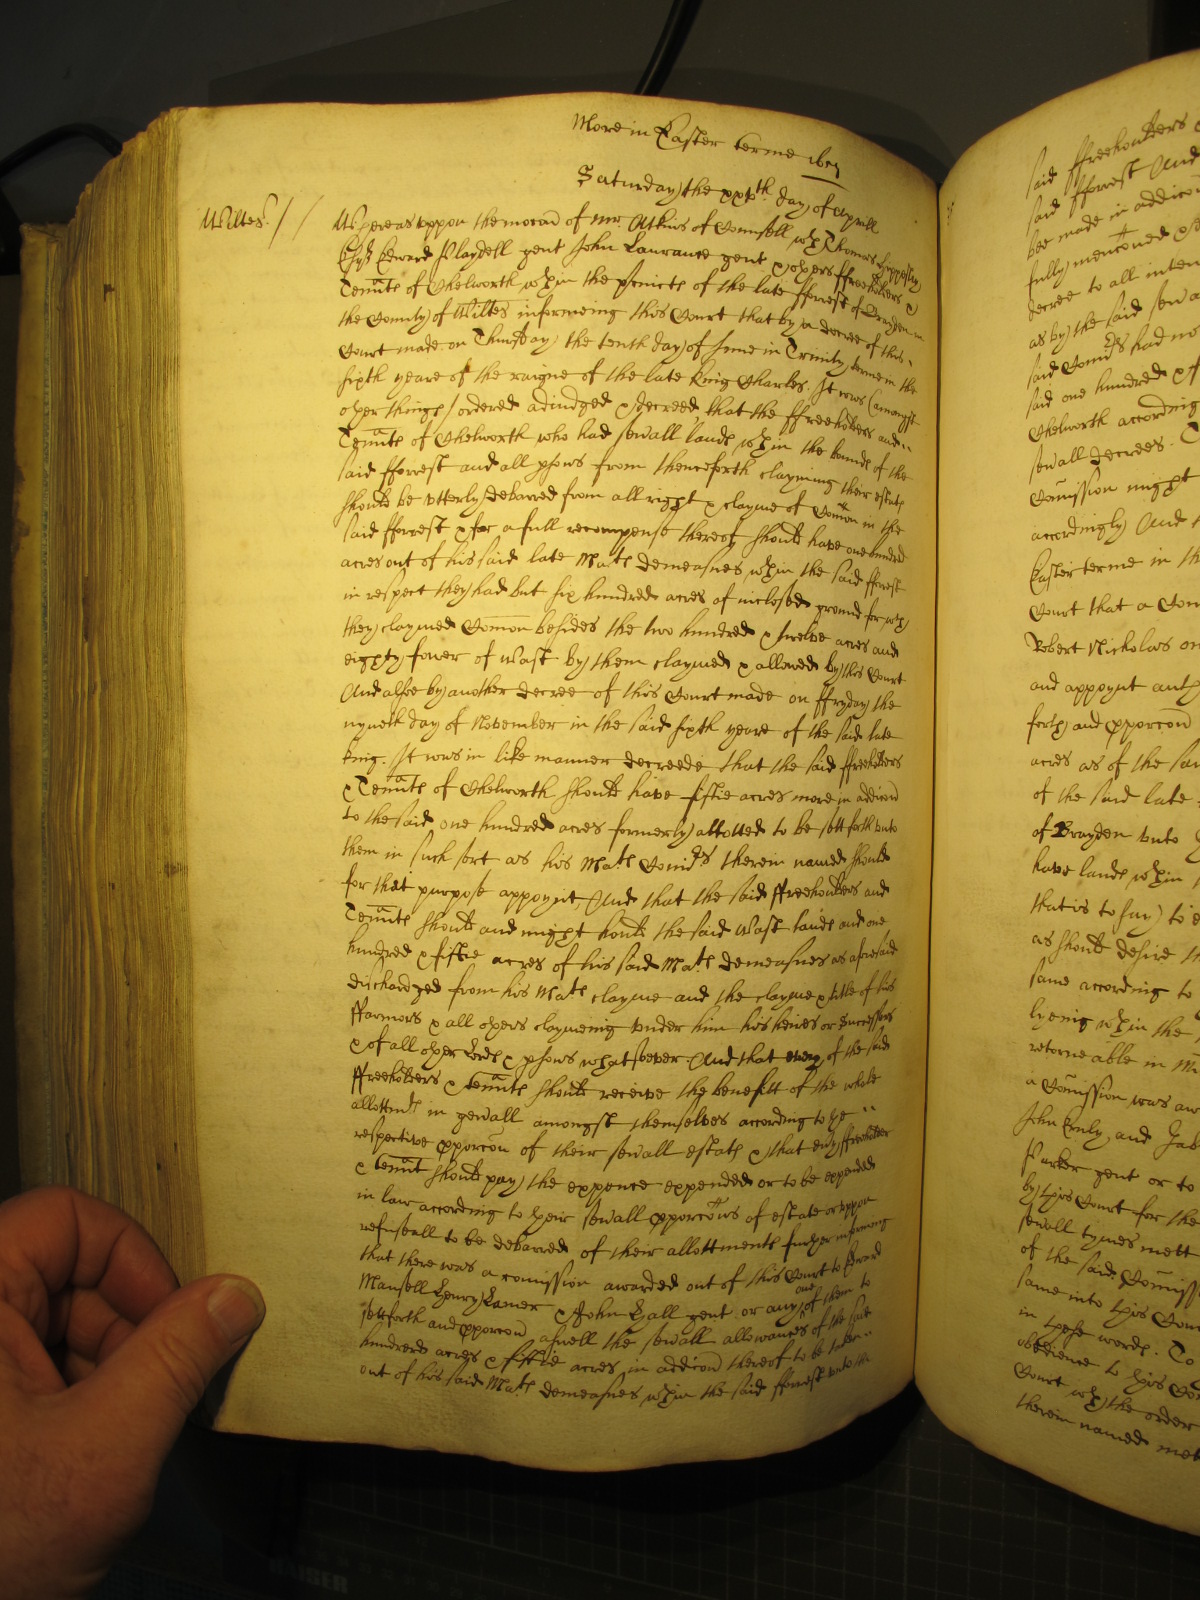 More in Easter terme 1657
Saturday the xxvth day of Aprill
Wiltes. //
Whereas uppon the mocon of Mr. Atkins of Counsell wth Thomas Hyppesley
Esqr Edward Playdell gent John Laurance gent & others ffreeholders &
Tennts of Chelworth wthin the precincts of the late fforrest of Brayden in
the County of Wiltes informeing this Court that by a decree of this
Court made on Thursday the tenth day of June in Trinity terme in the
sixth yeare of the raigne of the late King Charles. It was (amongst
other things) ordered adiudged & decreed, that the ffreeholders and
Tennts of Chelworth who had seuall lands wthin the bounds of the
said fforrest and all psons from thenceforth clayming their estats
should be vtterly debarred from all right & clayme of Common in the
said fforrest & for a full recompense thereof should haue one hundred
acres out of his said late Mats demeasnes wthin the said fforrest
in respect they had but six hundred acres of inclosed ground for wch
they claymed Comon besides the two hundred & twelve acres and
eighty fower of Wast by them claymed & allowed by this Court
And alsoe by another decree of this Court made on ffryday the
nyneth day of November in the said sixth yeare of the said late
King. It was in like manner decreede that the said ffreeholders
& Tennts of Chelworth should haue fiftie acres more in addicon
to the said one hundred acres formerly allotted to be sett forth vnto
them in such sort as his Mats Comrs therein named should
for that purpose appoynt, And that the said ffreeholders and
Tennts should and might hould the said Wast lands and one
hundred & fiftie acres of his said Mats demeasnes as aforesaid
dischardged from his Mats clayme and the clayme & title of his
ffarmors & all others claymeing vnder him his heires or Successors
& of all other Lords & psons whatsoever. And that every of the said
ffreeholders & tennts should receive the benefitt of the whole
allottmts in genall amongst themselves according to the
respective pporcon of their seuall estats & that euy ffreeholder
& tennt should pay the expence expended or to be expended
in law according to their seuall pporcons of estate or vppon
refuseall to be debarred of their allottments further informing
that there was a comission awarded out of this Court to Edward
Mansell Henry & John Hall gent or any one of them to
sett forth and pporcon aswell the seuall allowances of the said
hundred acres & fiftie acres, in addicon thereof to be taken
out of his said Mats demeasnes wthin the said fforrest vnto the
said ffreeholders
said fforrest And
bee made in addicon
fully menconed
decree to all inten
as by the said seua
said Comrs had no
said one hundred & f
Chelworth according
seuall decrees. T
Comission might
accordingly And
Easter terme in th
Court that a Com
Robert Nicholas
and appoynt
forth and pporcon
acres as of the sa
of the said late
of Brayden vnto
haue lands wthin
that is to say) to
as should desire th
same according to
lyeing wthin the
retorneable in
a Comission was aw
John Ernly, and
Parker gent or to
by this Court for the
seuall tymes mett
of the said Comiss
same into this Cour
in these words. To
obedience to this
Court wth the order
therein named met